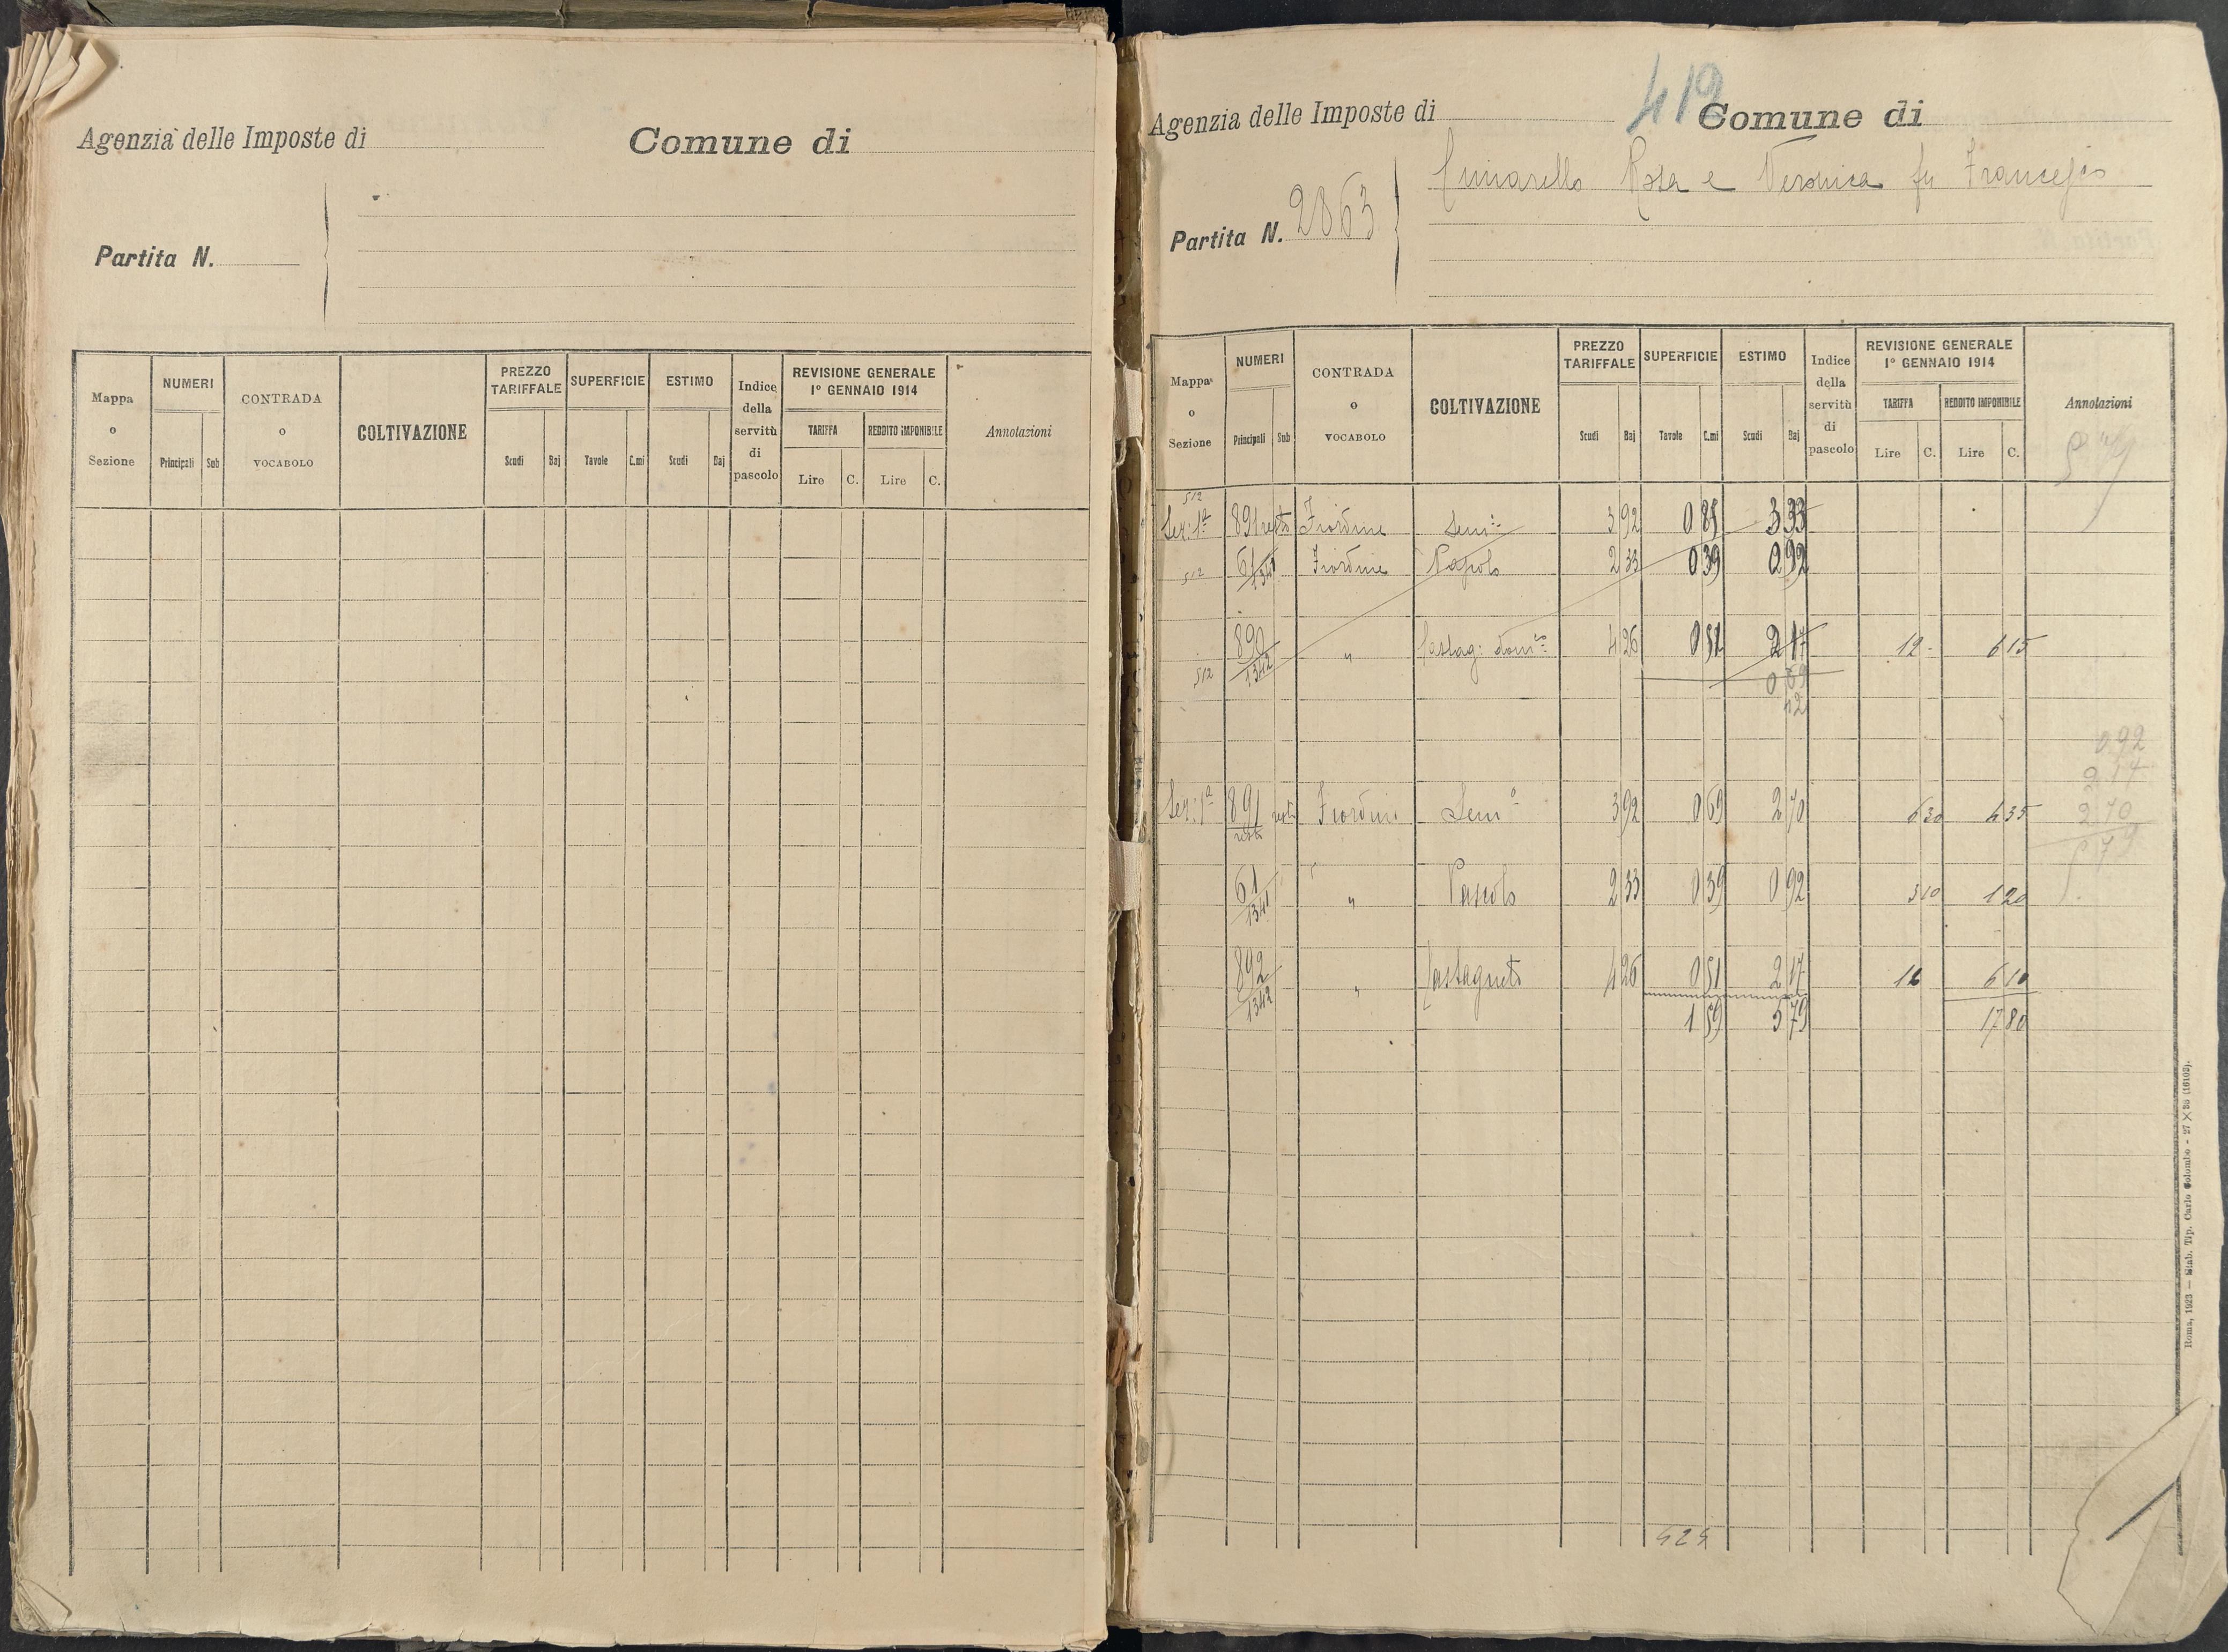 Agenzia delle Imposte di Comune di
Partita N.
Mappa o Sezione NUMERI CONTRADA o VOCABOLO COLTIVAZIONE PREZZO TARIFFALE SUPERFICIE ESTIMO Indice della servitù di pascolo REVISIONE GENERALE 1° GENNAIO 1914 Annotazioni
TARIFFA REDDITO IMPONIBILE
Principali Sub Scudi Baj Tavole C.mi Scudi Baj Lire C. Lire C.
419
Agenzia delle Imposte di Comune di
Rosa e Veronica fu Francesco
Partita N. 2863
Mappa o Sezione NUMERI CONTRADA o VOCABOLO COLTIVAZIONE PREZZO TARIFFALE SUPERFICIE ESTIMO Indice della servitù di pascolo REVISIONE GENERALE 1° GENNAIO 1914 Annotazioni
TARIFFA REDDITO IMPONIBILE
Principali Sub Scudi Baj Tavole C.mi Scudi Baj Lire C. Lire C.
512
Sez: 1ª 891 resto Fiordine Sem:º 3 92 0 85 3 33
512 61/1341 Fiordine Pascolo 2 33 0 39 0 92
512 890/1342 " Castag: dom:co 4 26 0 51 2 17 12 - 6 15
0 69
42
0 92
2 17
Sez: 1ª 891 resto Fiordine Sem:º 3 92 0 69 2 70 6 30 4 35 2 70
5 79
61/1341 " Pascolo 2 33 0 39 0 92 3 10 1 20
892/1342 " Castagneto 4 26 0 51 2 17 12 6 10
1 59 5 79 17 80
424
Roma, 1923 — Stab. Tip. Carlo Colombo - 27 X 38 (16103).